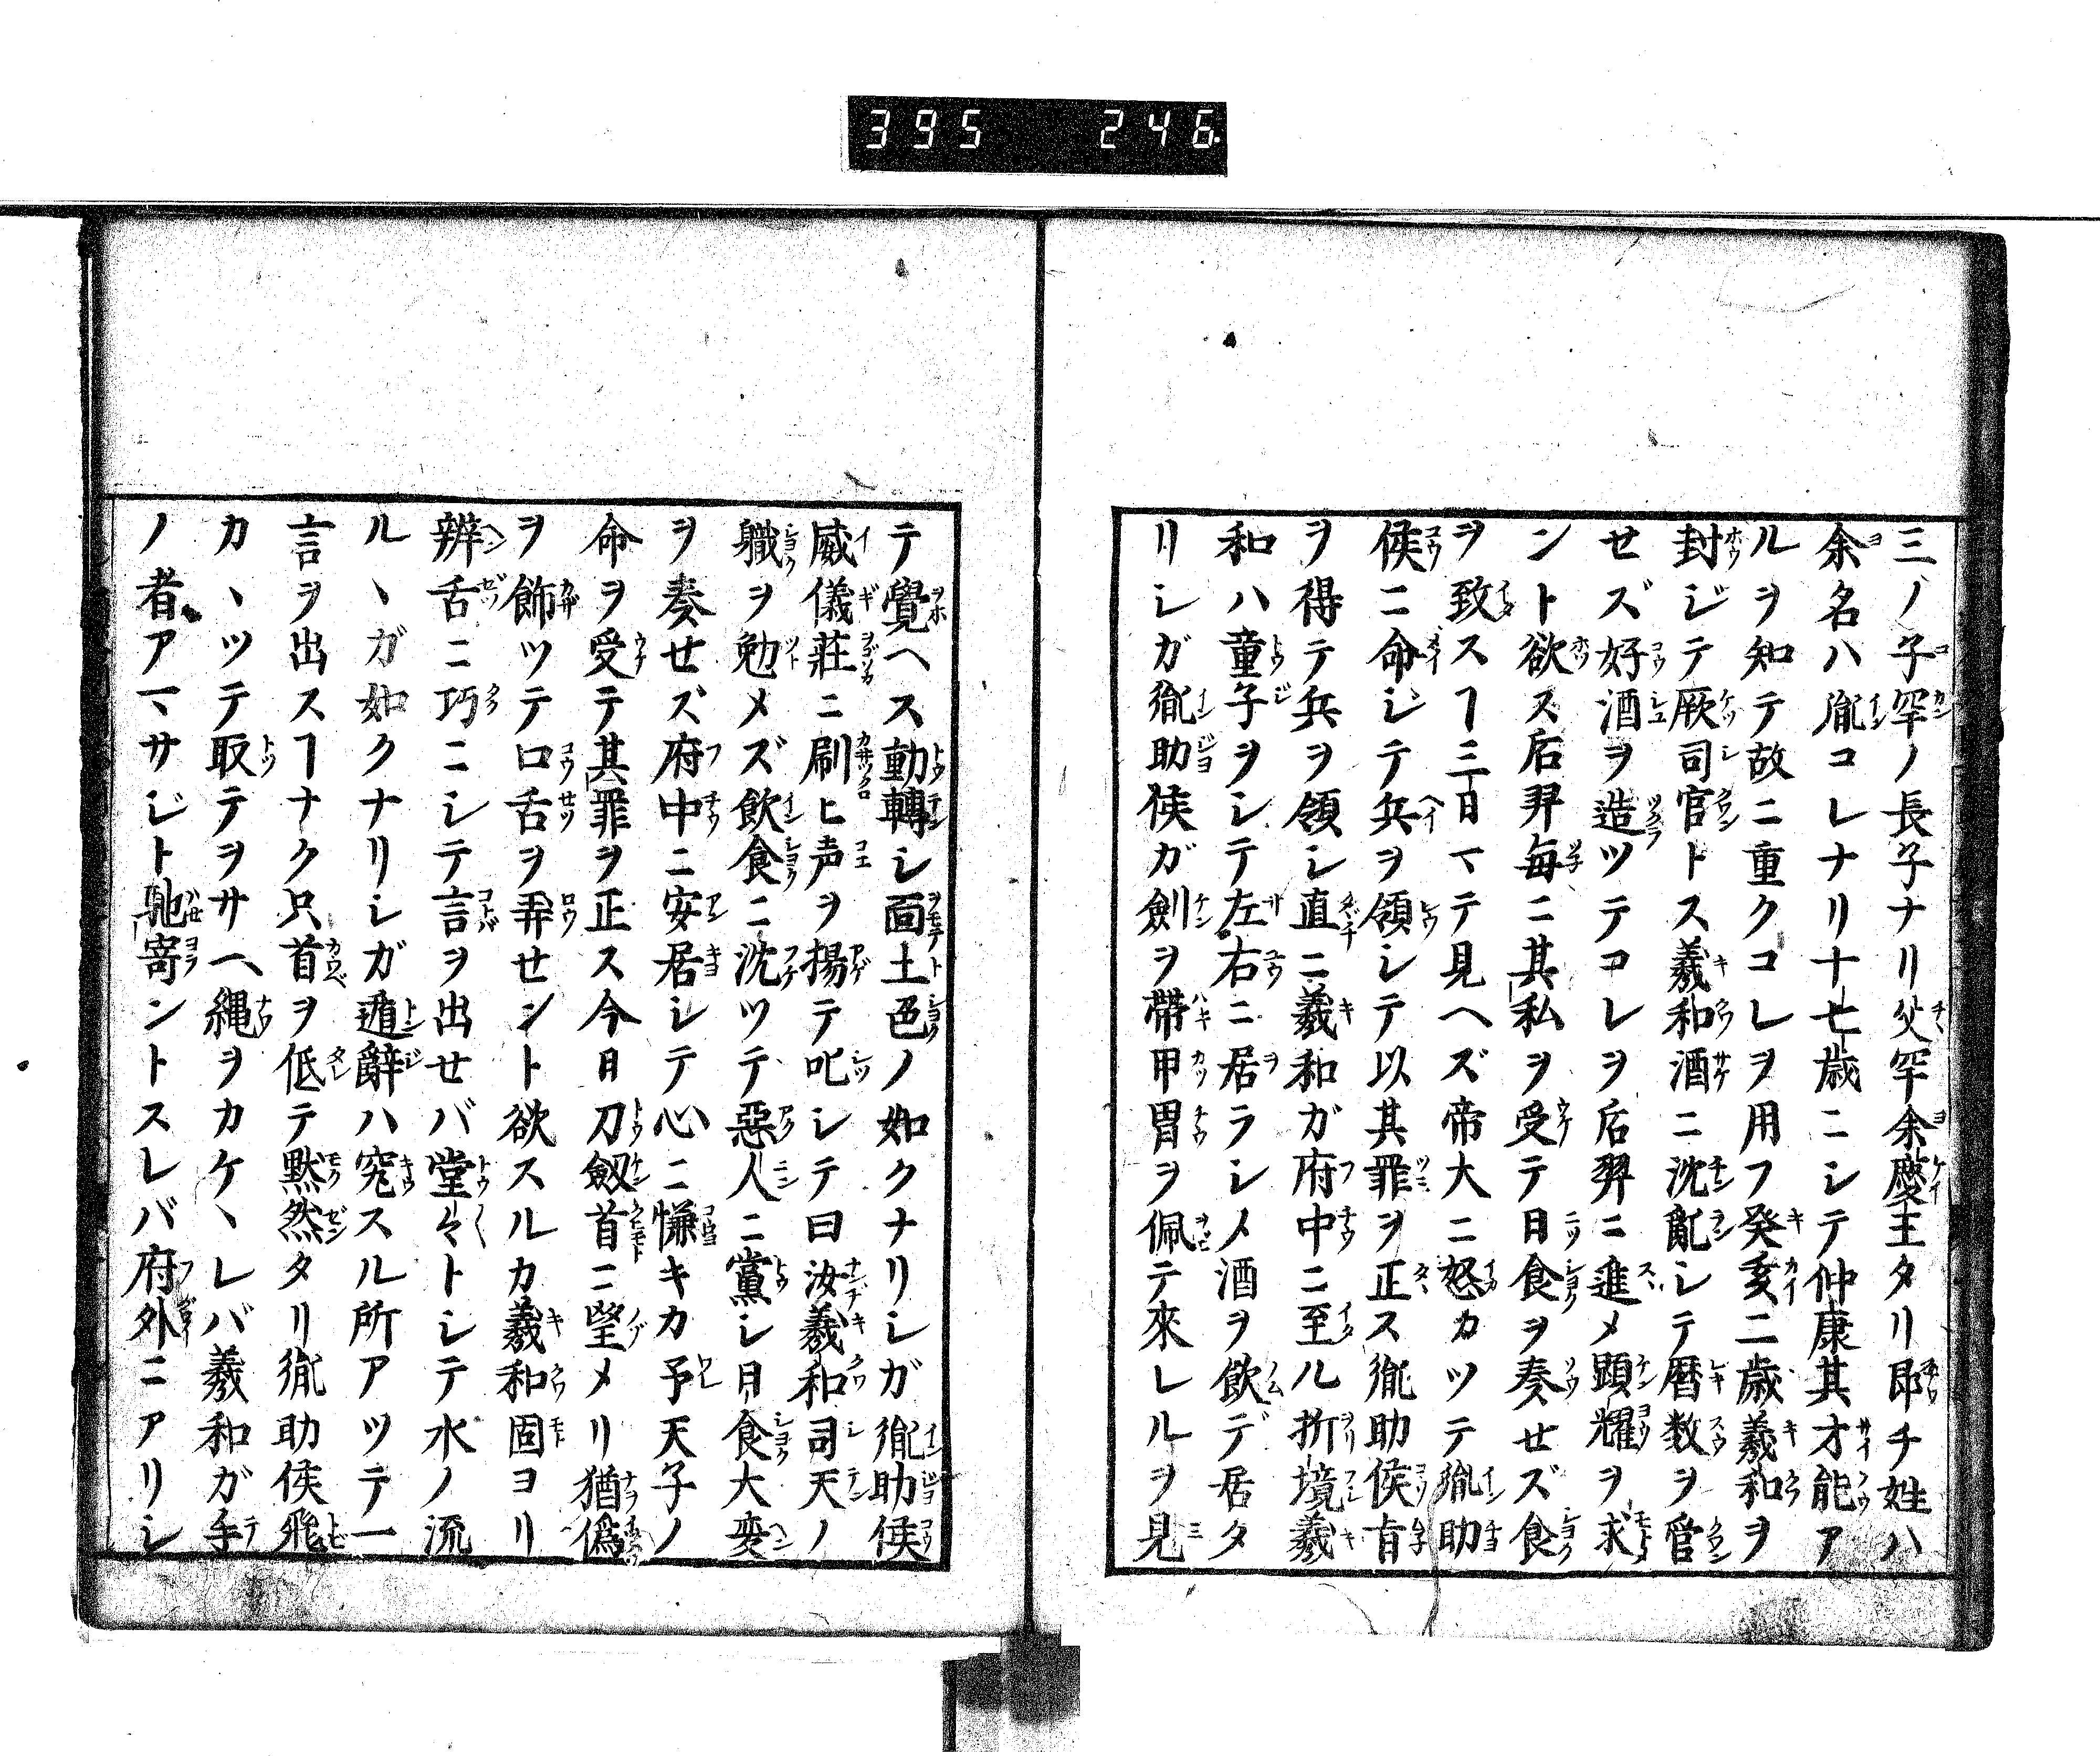 395 246
三ノ子罕ノ長子ナリ父罕余慶王タリ即チ姓ハ
余名ハ胤コレナリ十七歳ニシテ仲康其才能ア
ルヲ知テ故ニ重クコレヲ用フ癸亥二歳羲和ヲ
封ジテ厥司官トス羲和酒ニ沈乱シテ暦数ヲ官
セズ好酒ヲ造ツテコレヲ后羿ニ進メ顕耀ヲ求
ント欲ス后羿毎ニ其私ヲ受テ日食ヲ奏セズ食
ヲ致スヿ三日マテ見ヘズ帝大ニ怒カツテ胤助
侯ニ命シテ兵ヲ領シテ以其罪ヲ正ス胤助侯旨
ヲ得テ兵ヲ領シ直ニ羲和ガ府中ニ至ル折境羲
和ハ童子ヲシテ左右ニ居ラシメ酒ヲ飲デ居タ
リシガ胤助侯ガ劍ヲ帶甲冑ヲ佩テ來レルヲ見
テ覺ヘス動轉シ面土色ノ如クナリシガ胤助侯
威儀莊ニ刷ヒ声ヲ揚テ叱シテ曰汝羲和司天ノ
職ヲ勉メズ飲食ニ沈ツテ惡人ニ黨シ日食大変
ヲ奏セズ府中ニ安居シテ心ニ慊キカ予天子ノ
命ヲ受テ其罪ヲ正ス今日刀劔首ニ望メリ猶偽
ヲ飾ツテ口舌ヲ弄セント欲スルカ羲和固ヨリ
辨舌ニ巧ニシテ言ヲ出セバ堂々トシテ水ノ流
ルヽガ如クナリシガ遁辭ハ究スル所アツテ一
言ヲ出スヿナク只首ヲ低テ黙然タリ胤助侯飛
カヽツテ取テヲサヘ縄ヲカケヽレバ羲和ガ手
ノ者アマサジト馳寄ントスレバ府外ニアリシ